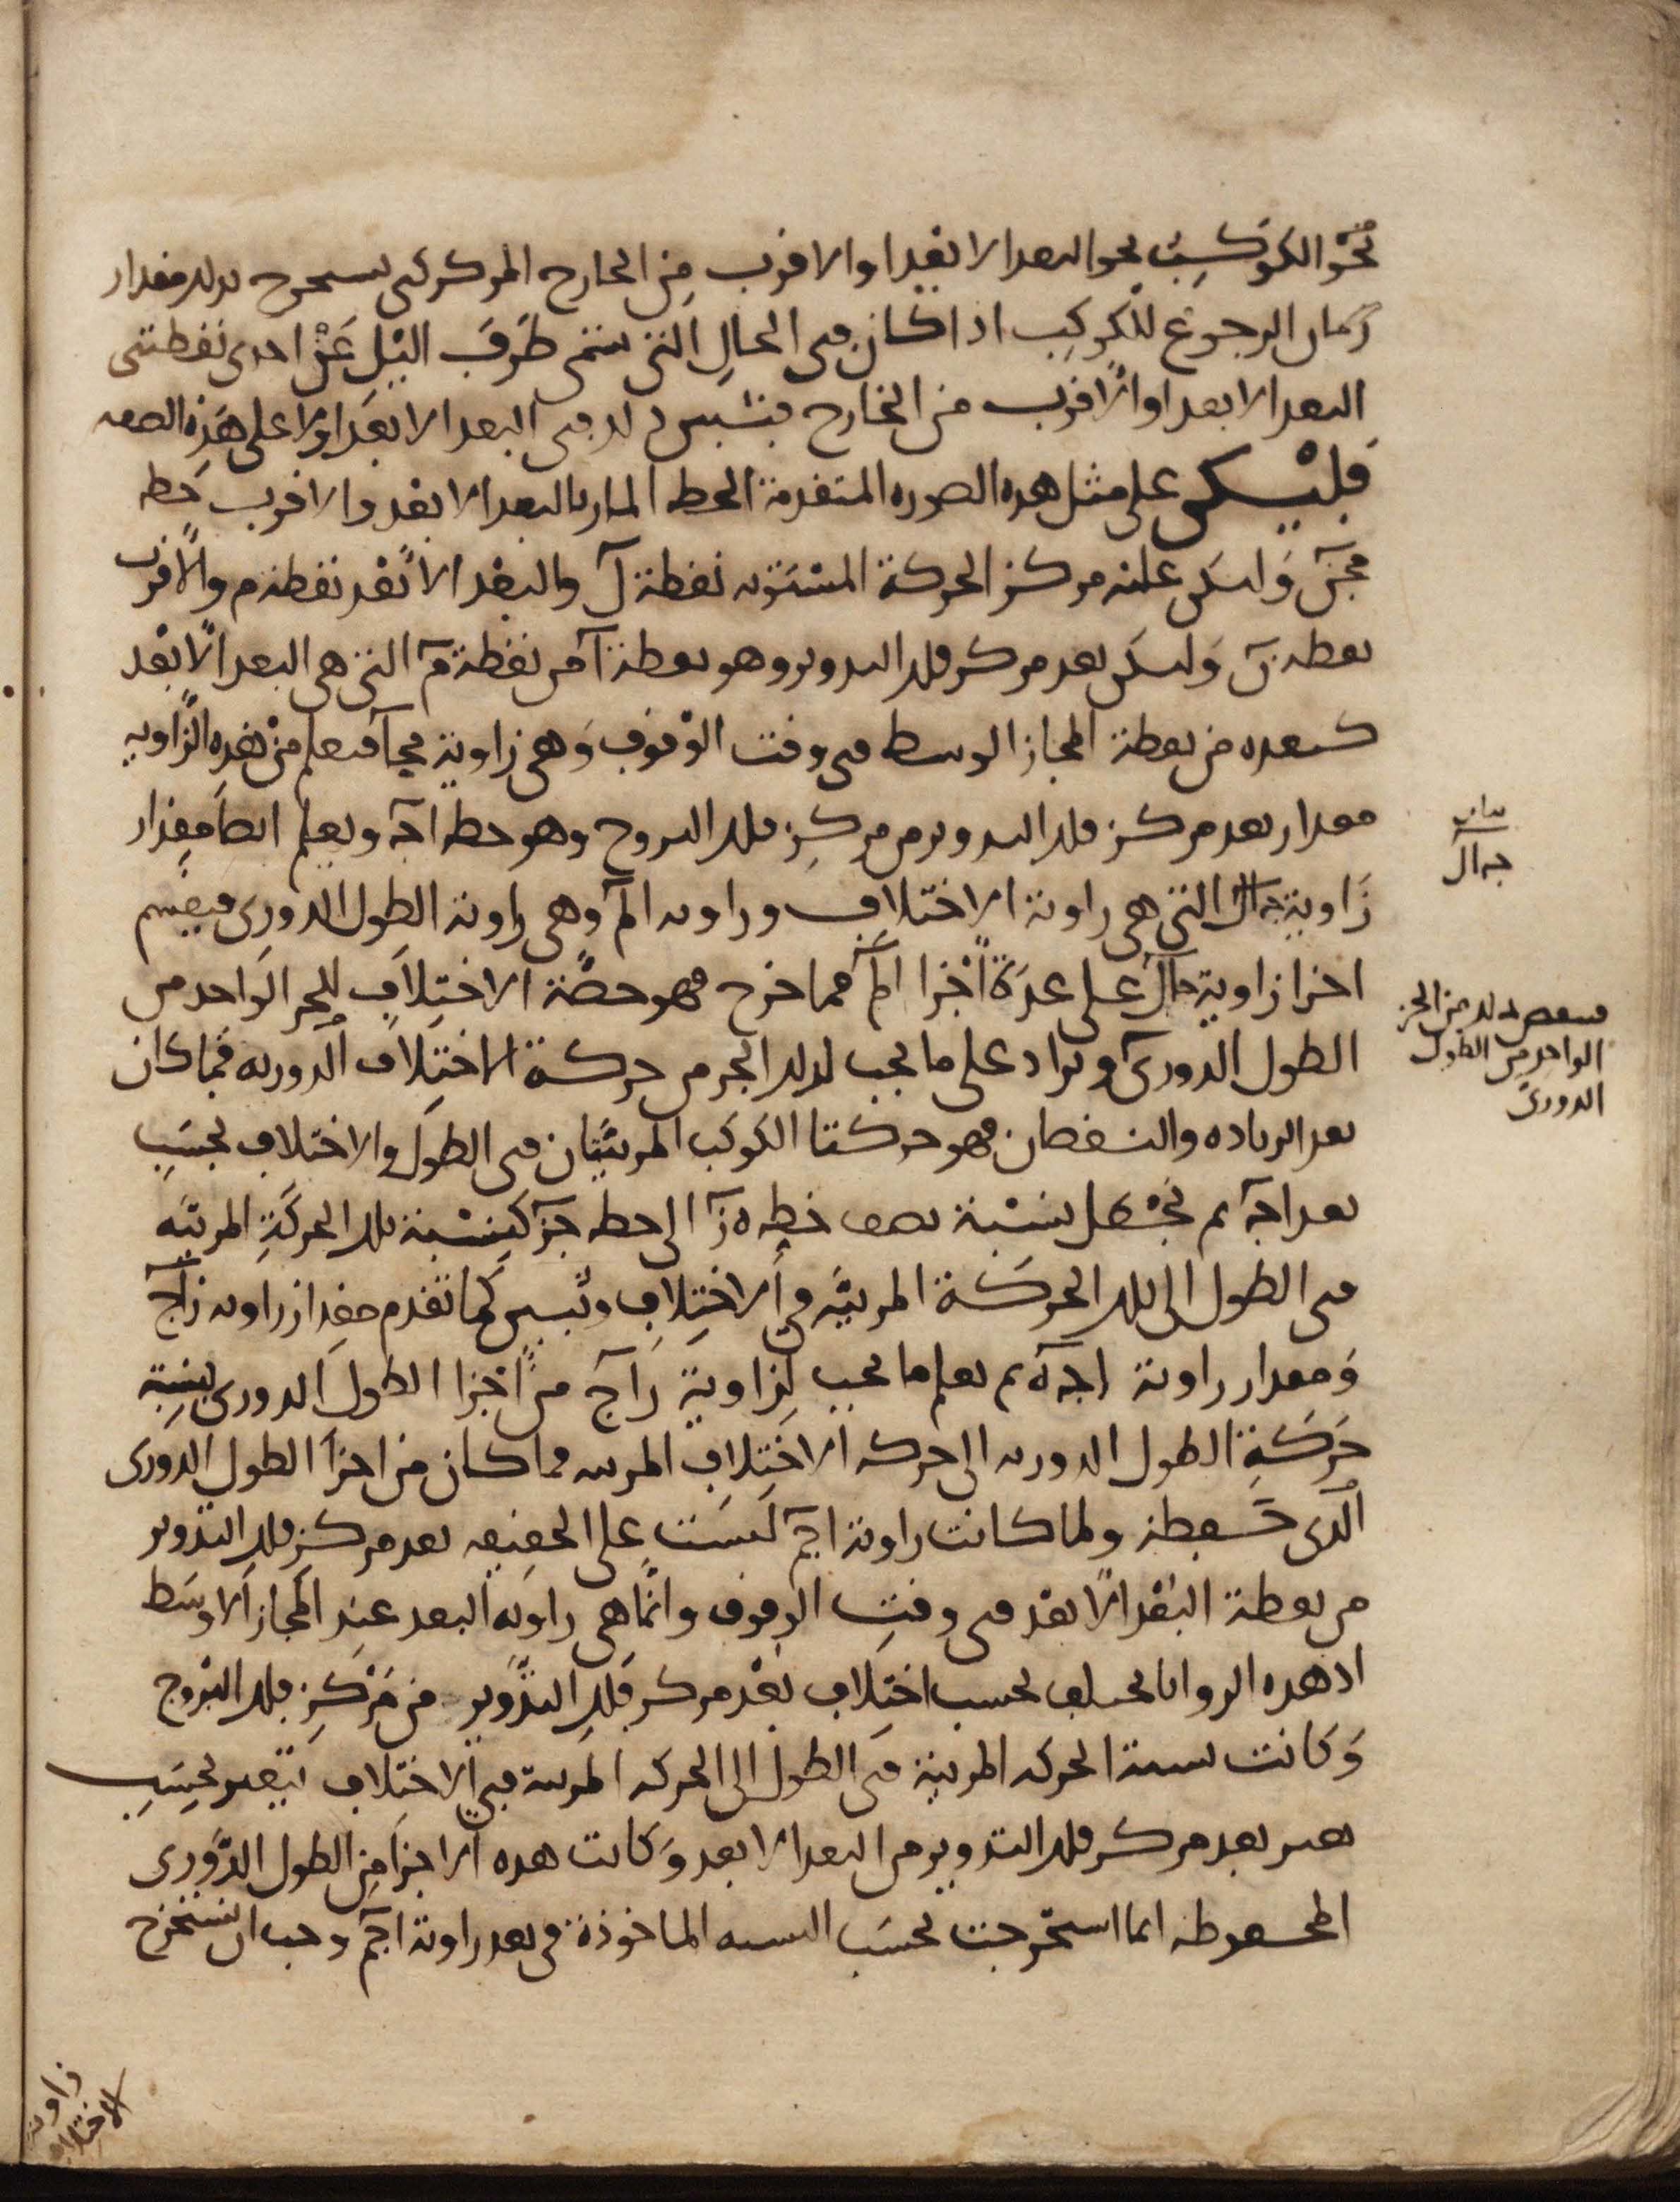 نحو الكوكب نحو البعد الابعد او الاقرب من الخارج المركز كي نستخرج بذلك مقدار
زمان الرجوع للكوكب اذا كان في الحال التي ينتهي طرف الليل عن احدى نقطتي
البعد الابعد او الاقرب من الخارج فنبين ذلك في البعد الابعد اولا على هذه الصفه
فليكن على مثل هذه الصوره المتقدمة الخط المار بالبعد الابعد والاقرب خط
مجن وليكن عليه مركز الحركة المستويه نقطة ل والبعد الابعد نقطة م والاقرب
نقطه ن وليكن بعد مركز فلك التدوير وهو نقطة ا من نقطة م التي هي البعد الابعد
كبعده من نقطة المجاز الوسط في وقت الوقوف وهي زاوية مجا فنعلم من هذه الزاويه
مقدار بعد مركز فلك التدوير من مركز فلك البروج وهو خط اجه ونعلم ايضا مقدار
زاوية جال التي هي زاوية الاختلاف وزاويه الم وهي زاوية الطول الدوري فنقسم
اجزا زاوية جال على عدة اجزا الم فما خرج فهو حصة الاختلاف للجز الواحد من
الطول الدوري ويزاد على ما يجب لذلك الجز من حركة الاختلاف الدوريه فما كان
بعد الزياده والنقصان فهو حركتا الكوكب المرئيتان في الطول والاختلاف بحسب
بعد اجه ثم نجعل نسبة نصف خط ه ز الى خط جز كنسبة تلك الحركة المرئيه
في الطول الى تلك الحركة المرئيه في الاختلاف ونبين كما تقدم مقدار زاويه زاج
ومقدار زاوية اجه ثم نعلم ما يجب لزاوية زاج من اجزا الطول الدوري بنسبة
حركة الطول الدوريه الى حركه الاختلاف المرئيه فما كان من اجزا الطول الدوري
الذي حفظنه ولما كانت زاوية اجم ليست على الحقيقه بعد مركز فلك التدوير
من نقطة البعد الابعد في وقت الوقوف وانما هي زاويه البعد عند المجاز الاوسط
اذ هذه الزوايا تختلف بحسب اختلاف بعد مركز فلك التدوير من مركز فلك البروج
وكانت نسبة الحركه المرئية في الطول الى الحركه المرئية في الاختلاف تتغير بحسب
تغير بعد مركز فلك التدوير من البعد الابعد وكانت هذه الاجزا من الطول الدوري
المحفوظه انما استخرجت بحسب النسبه الماخوذة في بعد زاوية اجم وجب ان نستخرج
بيان
جال
فينقص ذلك من الجز
الواحد من الطول
الدوري
زاوية
الاختلاف